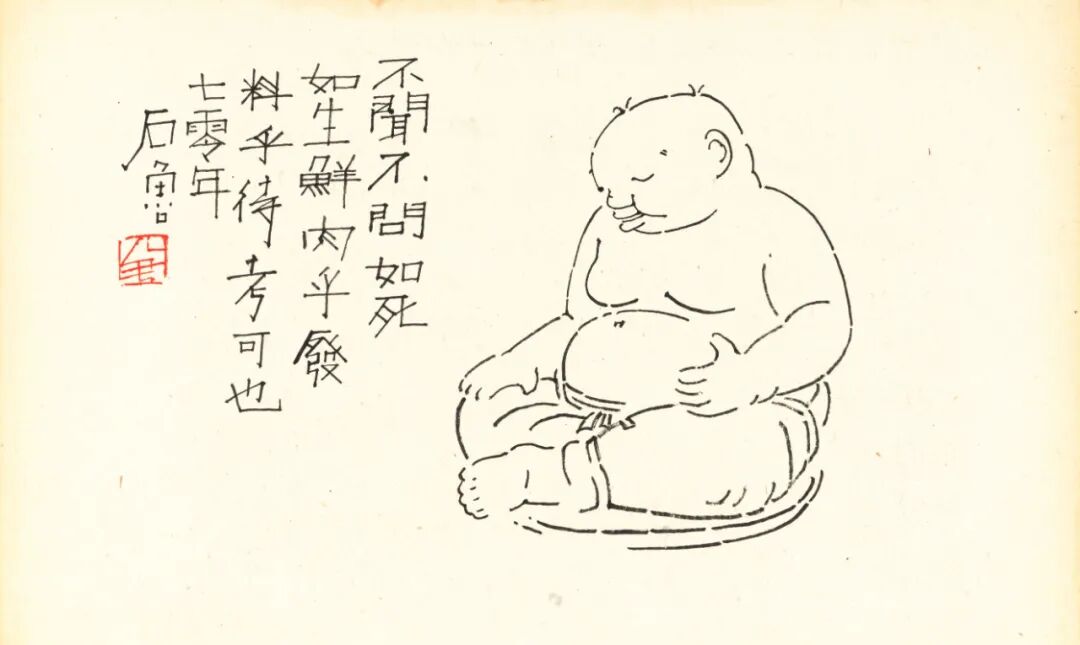 不聞不問如死
如生鮮肉乎發
料乎待考可也
七零年
石魯